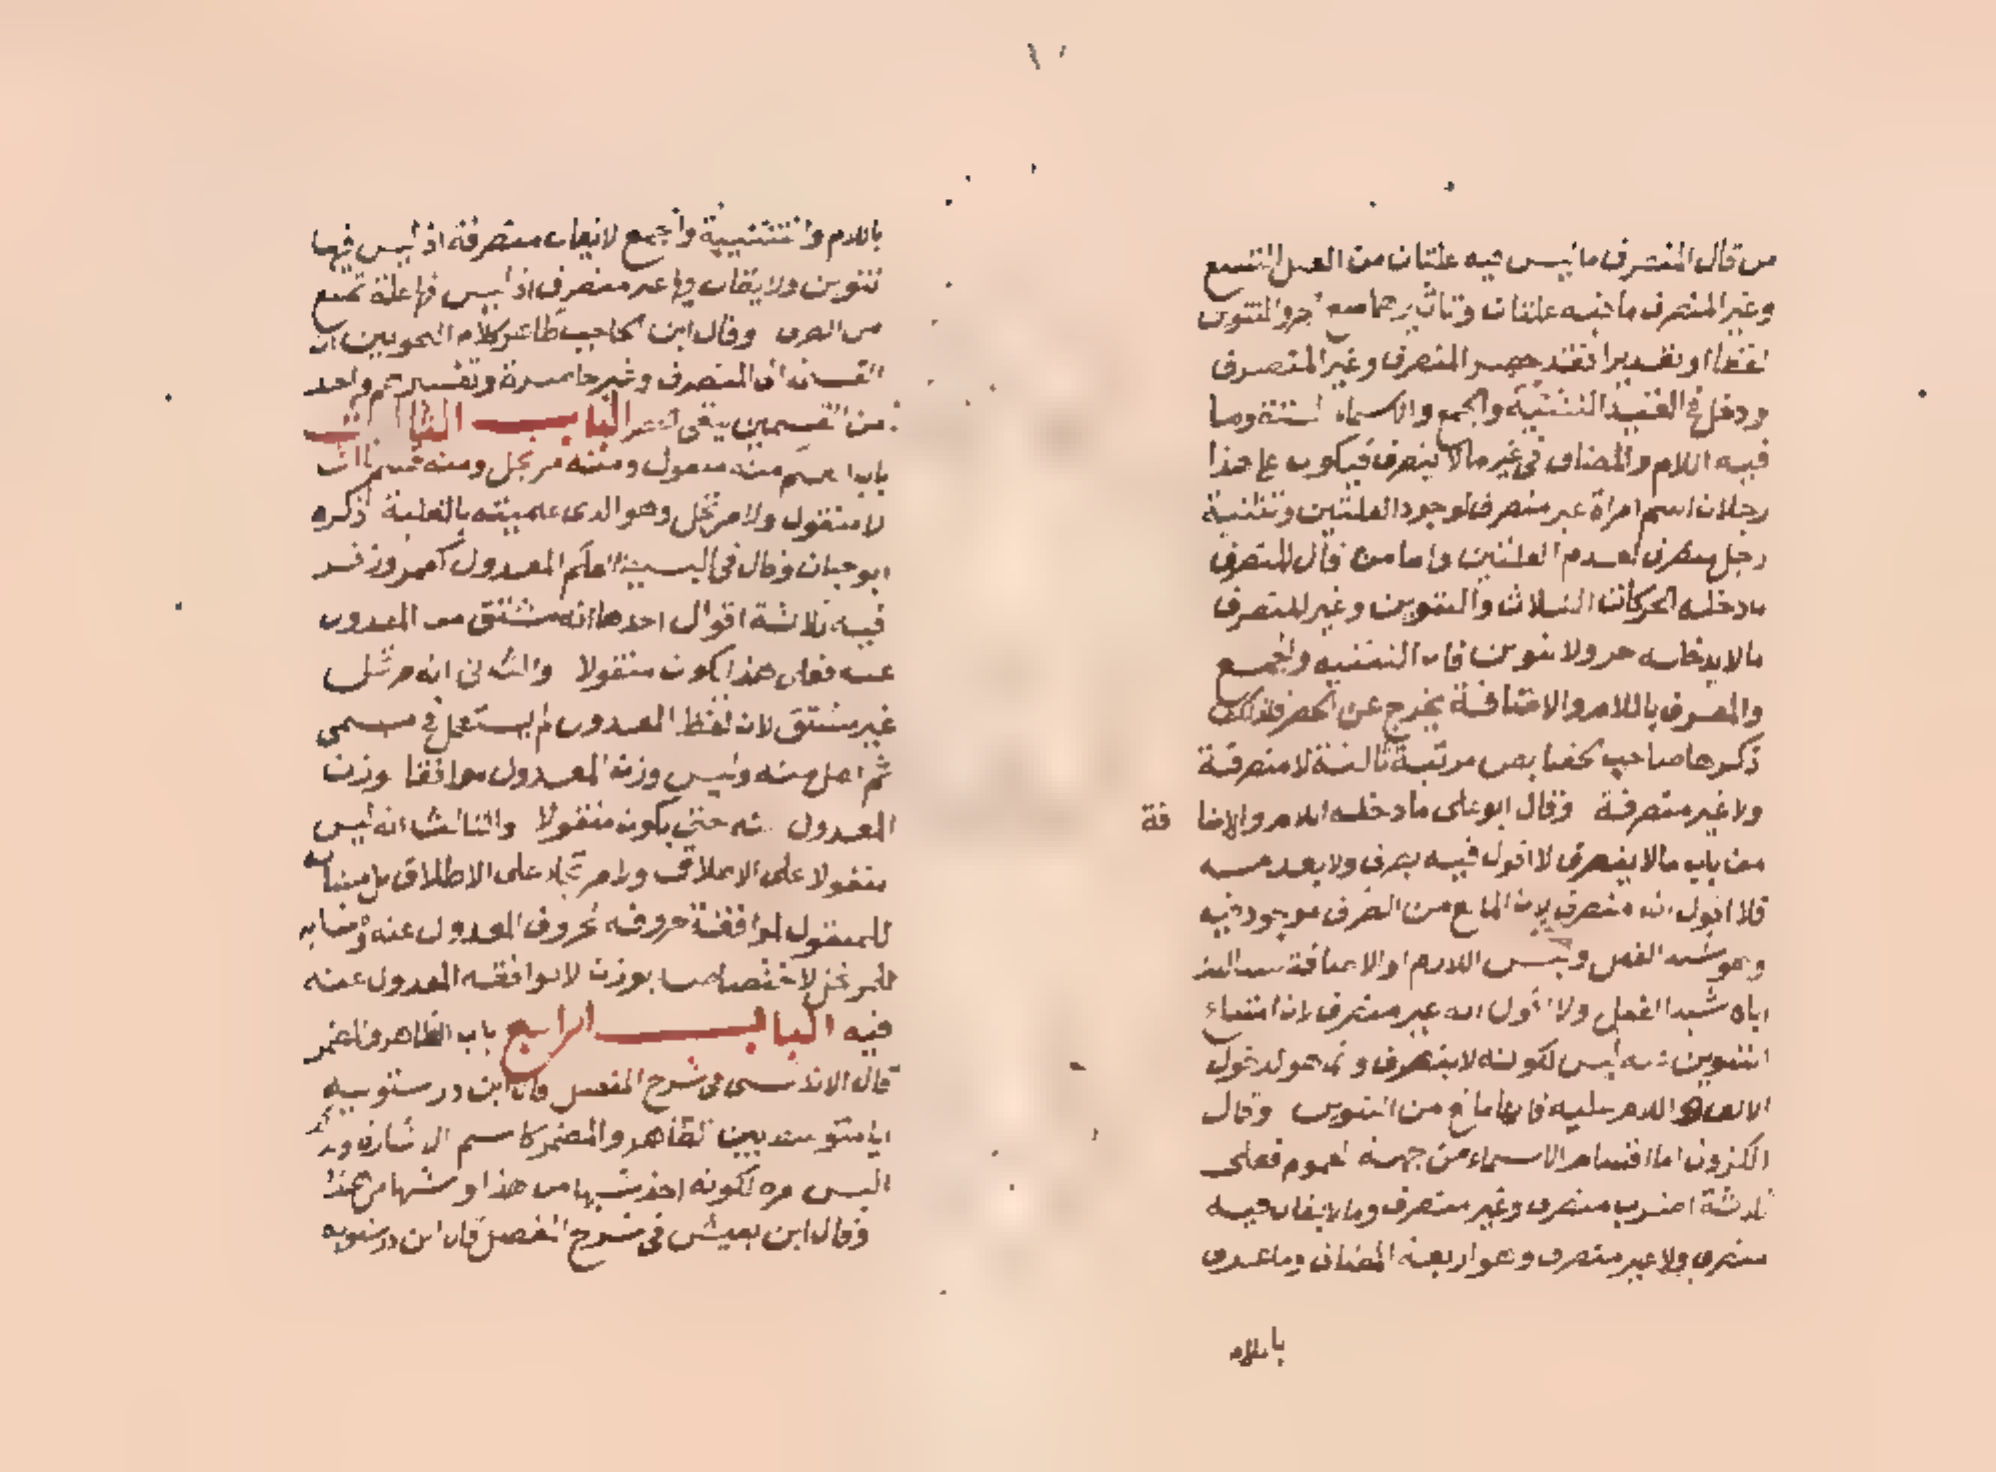 من قال المنصرف ما ليس فيه علتان من العلل التسع
وغير المنصرف ما فيه علتان وتاثيرهما منع الجر والتنوين
لفظا او تقديرا فقد حصر المنصرف وغير المنصرف
ودخل في التثنية والجمع والاسماء الستة وما
فيه اللام والمضاف في غير مالا ينصرف فيكون على هذا
رجلان اسم امراة غير منصرف لوجود العلتين وتثنية
رجل منصرف لعدم العلتين واما من قال المنصرف
ما دخله الحركات الثلاث والتنوين وغير المنصرف
مالا يدخله جر ولا تنوين فان التثنيه والجمع
والمعرف باللام والاضافة يخرج عن الحصر فلذلك
ذكرها صاحب الخصايص مرتبة ثالثة لا منصرفة
ولا غير منصرفة وقال ابو على ما دخله اللام والاضافة
من باب مالا ينصرف لا اقول فيه بصرف ولا بعدمه
فلا اقول انه منصرف لان المانع من الصرف موجود فيه
وهو شبه الفعل وليس اللام او الاضافة
اياه شبه الفعل ولا اقول انه غير منصرف لان امتناع
التنوين منه ليس لكونه لا ينصرف وانما هو لدخول
الالف واللام عليه فانها مانع من التنوين وقال
الاكثرون اما اقسام الاسماء من جهة العموم فعلى
ثلاثة اضرب منصرف وغير منصرف وما لا يقال فيه
منصرف ولا غير منصرف وهو اربعة المضاف وما عرف
باللام
باللام والتثنية والجمع لا يقال منصرفة اذ ليس فيها
تنوين ولا يقال فيها غير منصرف اذ ليس فيها علة تمنع
من الصرف وقال ابن الحاجب ظاهر كلام النحويين ان
القسمة الى المنصرف وغير حاصرة وتفسيرهم واحد
من القسمين ينفى الحصر الباب الثالث
باب العلم منه منقول ومنه مرتجل ومنه قسم ثالث
لا منقول ولا مرتجل وهو الذى علميته بالغلبة ذكره
ابو حيان وقال في البسيط العلم المعدول كعمر وزفر
فيه ثلاثة اقوال احدها انه مشتق من المعدول
عنه فعلى هذا يكون منقولا والثانى انه مرتجل
غير مشتق لان لفظ المعدول لم يستعمل في مسمى
ثم نقل منه وليس وزن المعدول موافقا لوزن
المعدول عنه حتى يكون منقولا والثالث انه ليس
منقولا على الاطلاق ولا مرتجلا على الاطلاق بل مشابه
للمنقول لموافقة حروفه لحروف المعدول عنه ومشابه
للمرتجل لاختصاصه بوزن لا يوافقه المعدول عنه
فيه الباب الرابع باب الظاهر والمضمر
قال الاندلسى فى شرح المفصل قال ابن درستويه
ايا متوسط بين الظاهر والمضمر كاسم الاشارة
اليس مره لكونه اخذ شبها من هذا وشبها من هذا
وقال ابن يعيش في شرح المفصل قال ابن درستويه